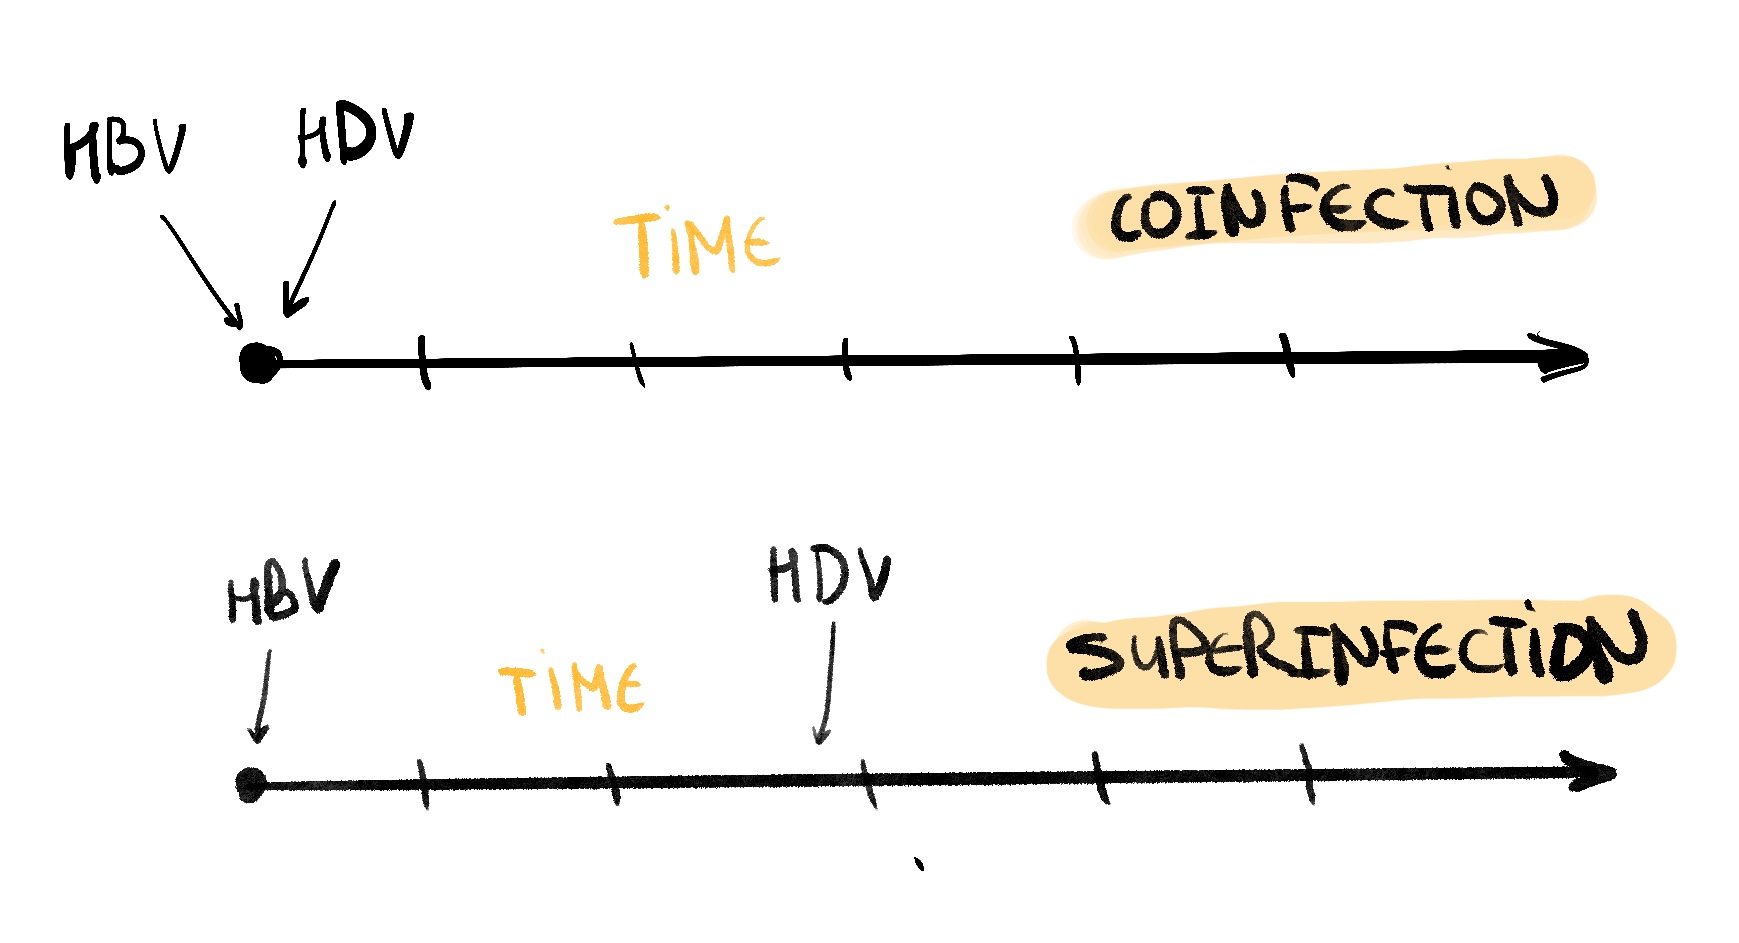 HBV HDV
TIME
COINFECTION
HBV
HDV
TIME
SUPERINFECTION